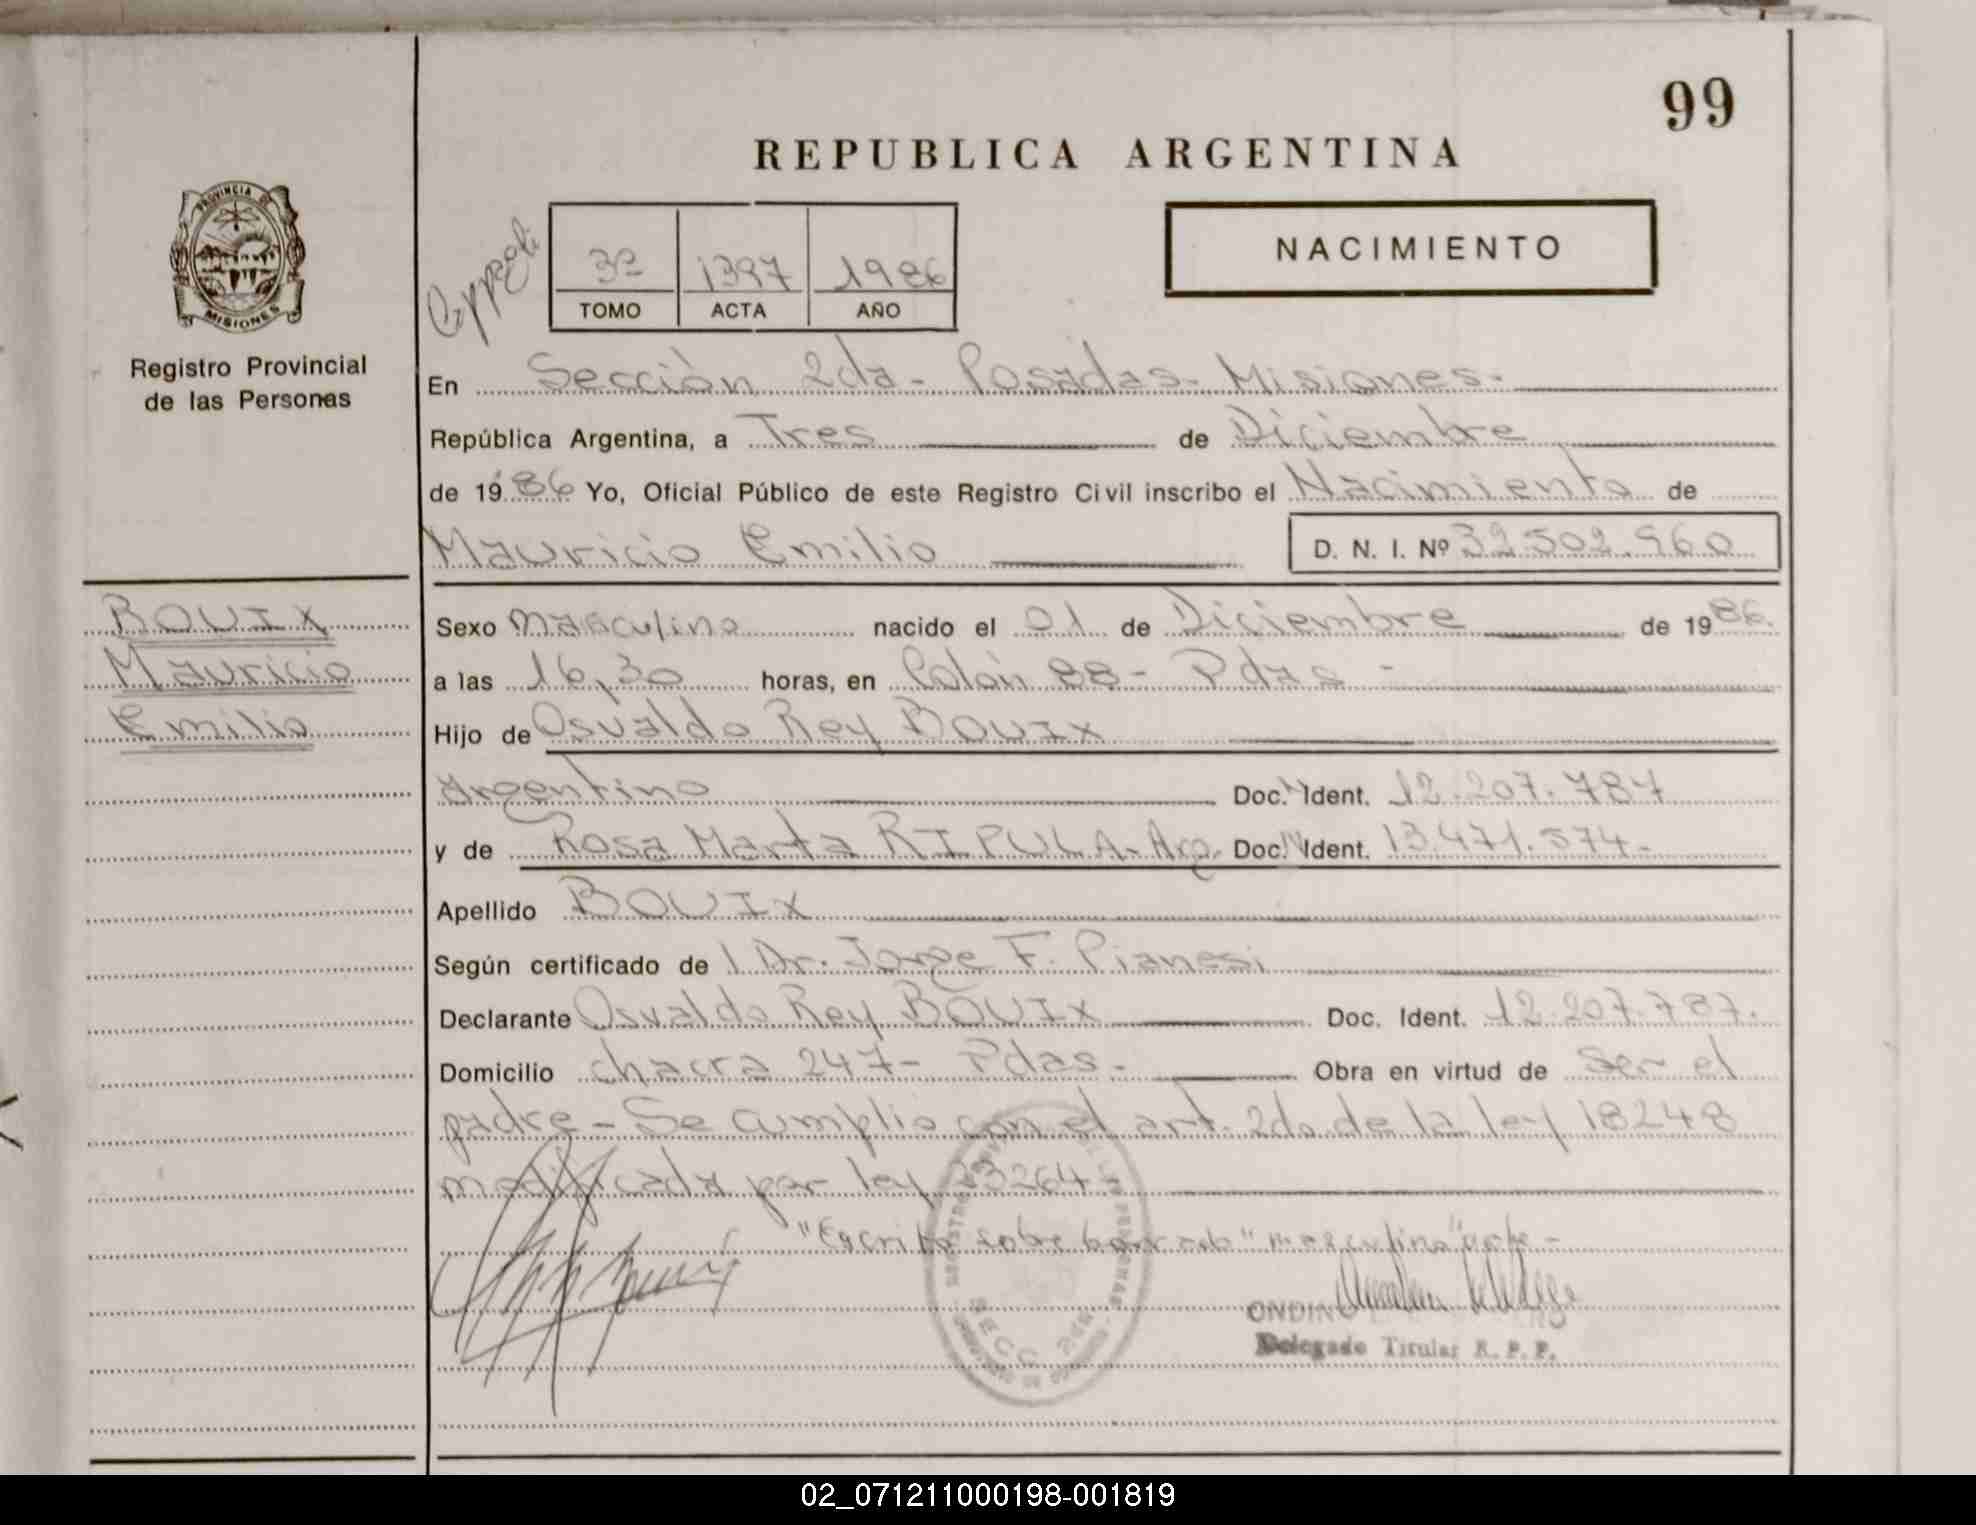 99
REPUBLICA ARGENTINA
PROVINCIA DE
MISIONES
Registro Provincial
de las Personas
3º 1397 1986
TOMO ACTA AÑO
NACIMIENTO
En Sección 2da - Posadas - Misiones -
República Argentina, a Tres de Diciembre
de 1986 Yo, Oficial Público de este Registro Civil inscribo el Nacimiento de
Mauricio Emilio D. N. I. Nº 32.502.960
BOUIX
Mauricio
Emilio
Sexo masculino nacido el 01 de Diciembre de 1986.
a las 16,30 horas, en Colón 88 - Pdas -
Hijo de Osvaldo Rey BOUIX
argentino Doc. Ident. 12.207.787
y de Rosa Marta RIPULA - Arg. Doc. Ident. 13.471.574 -
Apellido BOUIX
Según certificado de l Dr. Jorge F. Pianesi
Declarante Osvaldo Rey BOUIX Doc. Ident. 12.207.787.
Domicilio chacra 247 - Pdas - Obra en virtud de ser el
padre - Se cumplio con el art. 2do de la ley 18248
modificada por ley 23264 -
"Escrito sobre borrado" "masculino" vale -
ONDINO
Delegado Titular R. P. P.
SECC. 2da
02_071211000198-001819